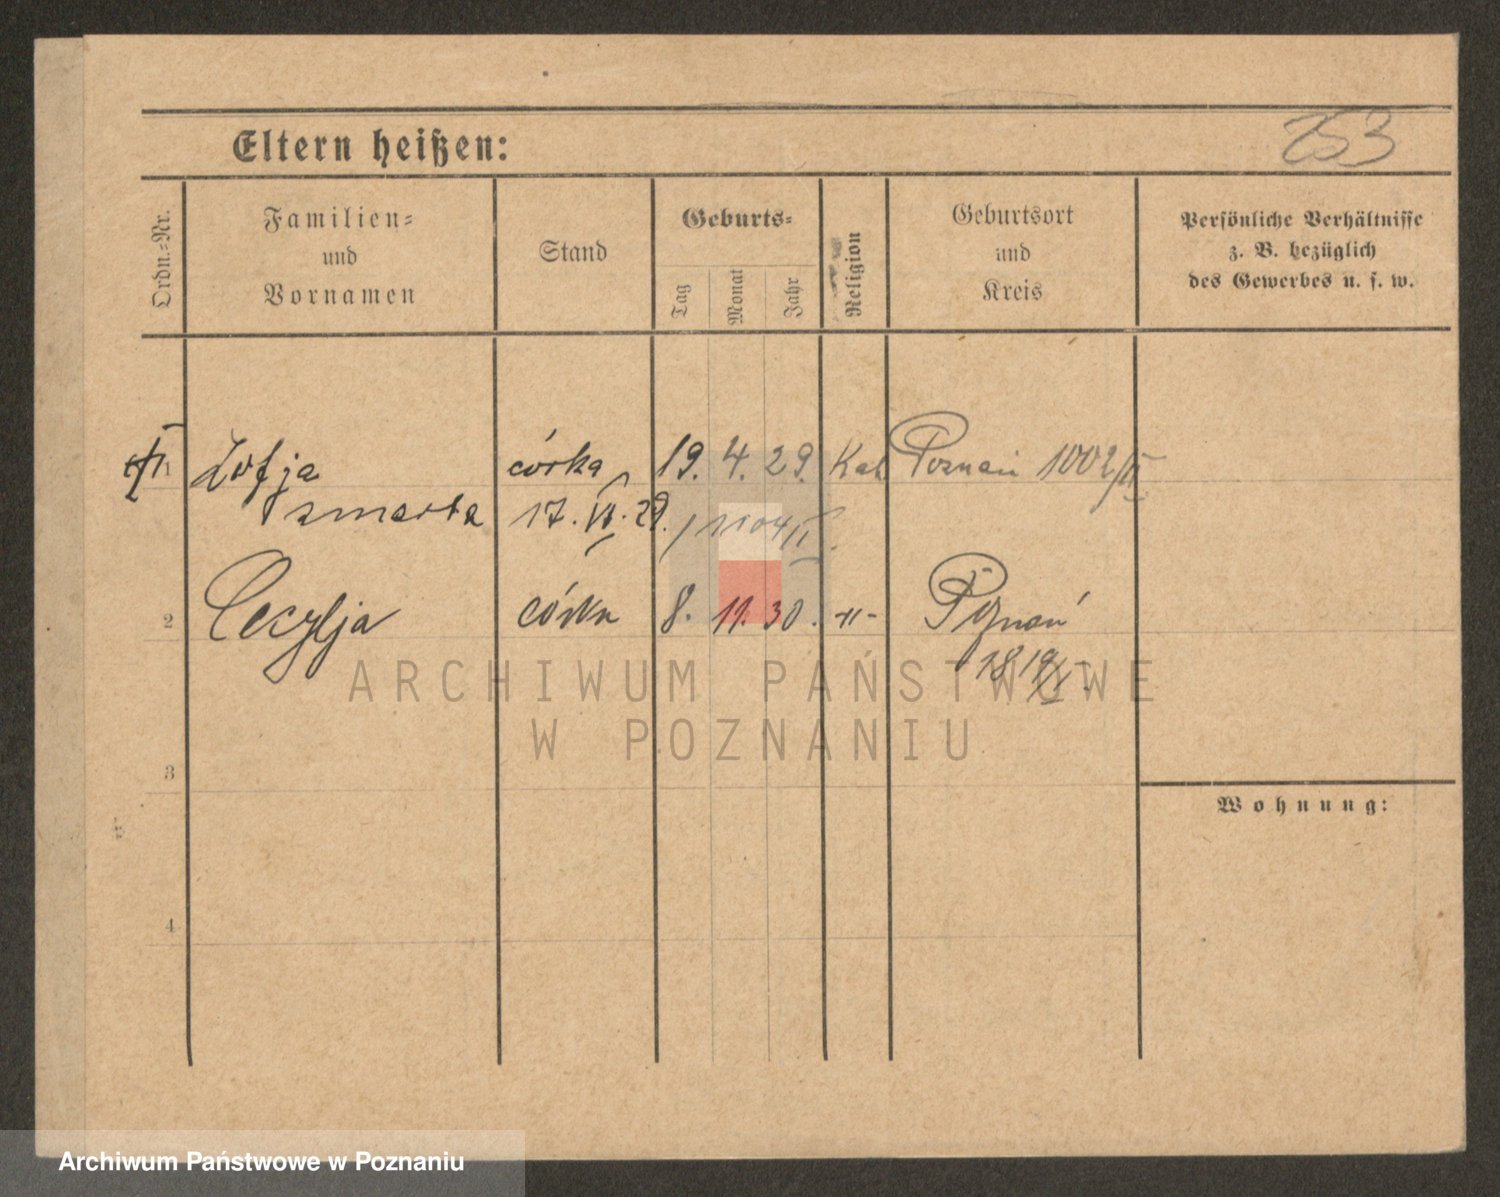 253
Eltern heißen:
Ordn.-Nr.
Familien-
und
Vornamen
Stand
Geburts-
Tag
Monat
Jahr
Religion
Geburtsort
und
Kreis
Persönliche Verhältnisse
z. B. bezüglich
des Gewerbes u. s. w.
1 Zofja córka 19. 4. 29. Kat. Poznań 1002/II
zmarła 17. VI. 29. / 1104/II.
2 Cecylja córka 8. 11. 30. -"- Poznań
1819/II.
ARCHIWUM PAŃSTWOWE
W POZNANIU
3
Wohnung:
4
Archiwum Państwowe w Poznaniu